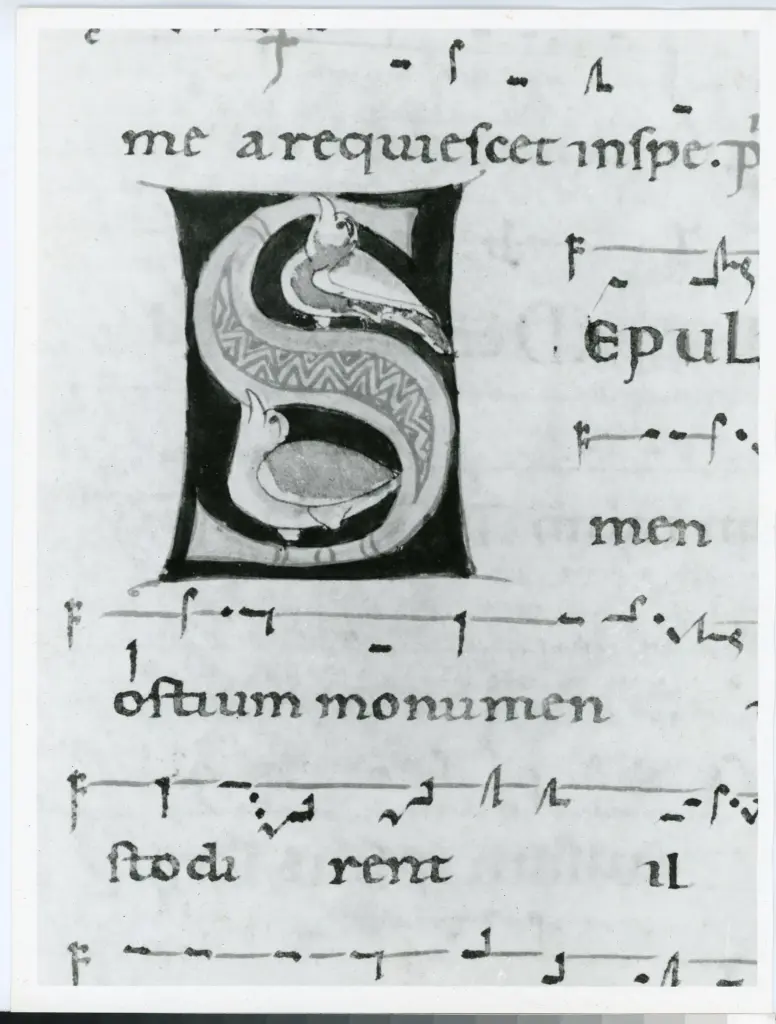 me a requiescet in spe. p̄
SEpuL
men
ostium monumen
stodi rent il